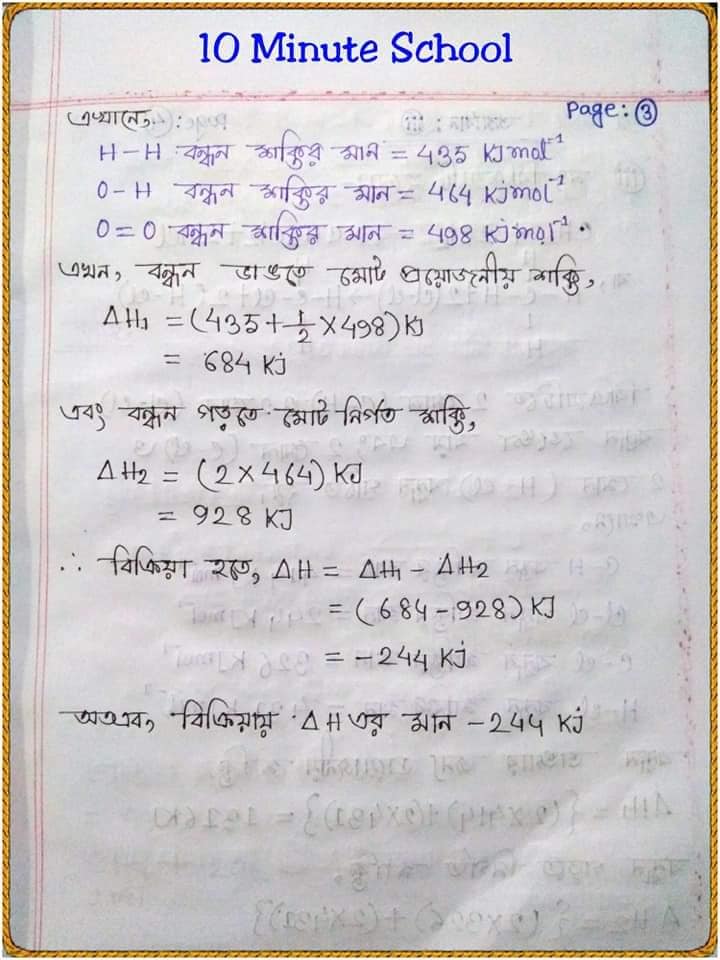 10 Minute School
Page: ③
এখানে, :
H-H বন্ধন শক্তির মান = 435 KJmol⁻¹
O-H বন্ধন শক্তির মান = 464 KJmol⁻¹
O=O বন্ধন শক্তির মান = 498 KJmol⁻¹.
এখন, বন্ধন ভাঙতে মোট প্রয়োজনীয় শক্তি,
ΔH₁ = (435+½×498) KJ
= 684 KJ
এবং বন্ধন গড়তে মোট নির্গত শক্তি,
ΔH₂ = (2×464) KJ
= 928 KJ
∴ বিক্রিয়া হতে, ΔH = ΔH₁ - ΔH₂
= (684-928) KJ
= -244 KJ
অতএব, বিক্রিয়ায় ΔH এর মান -244 KJ